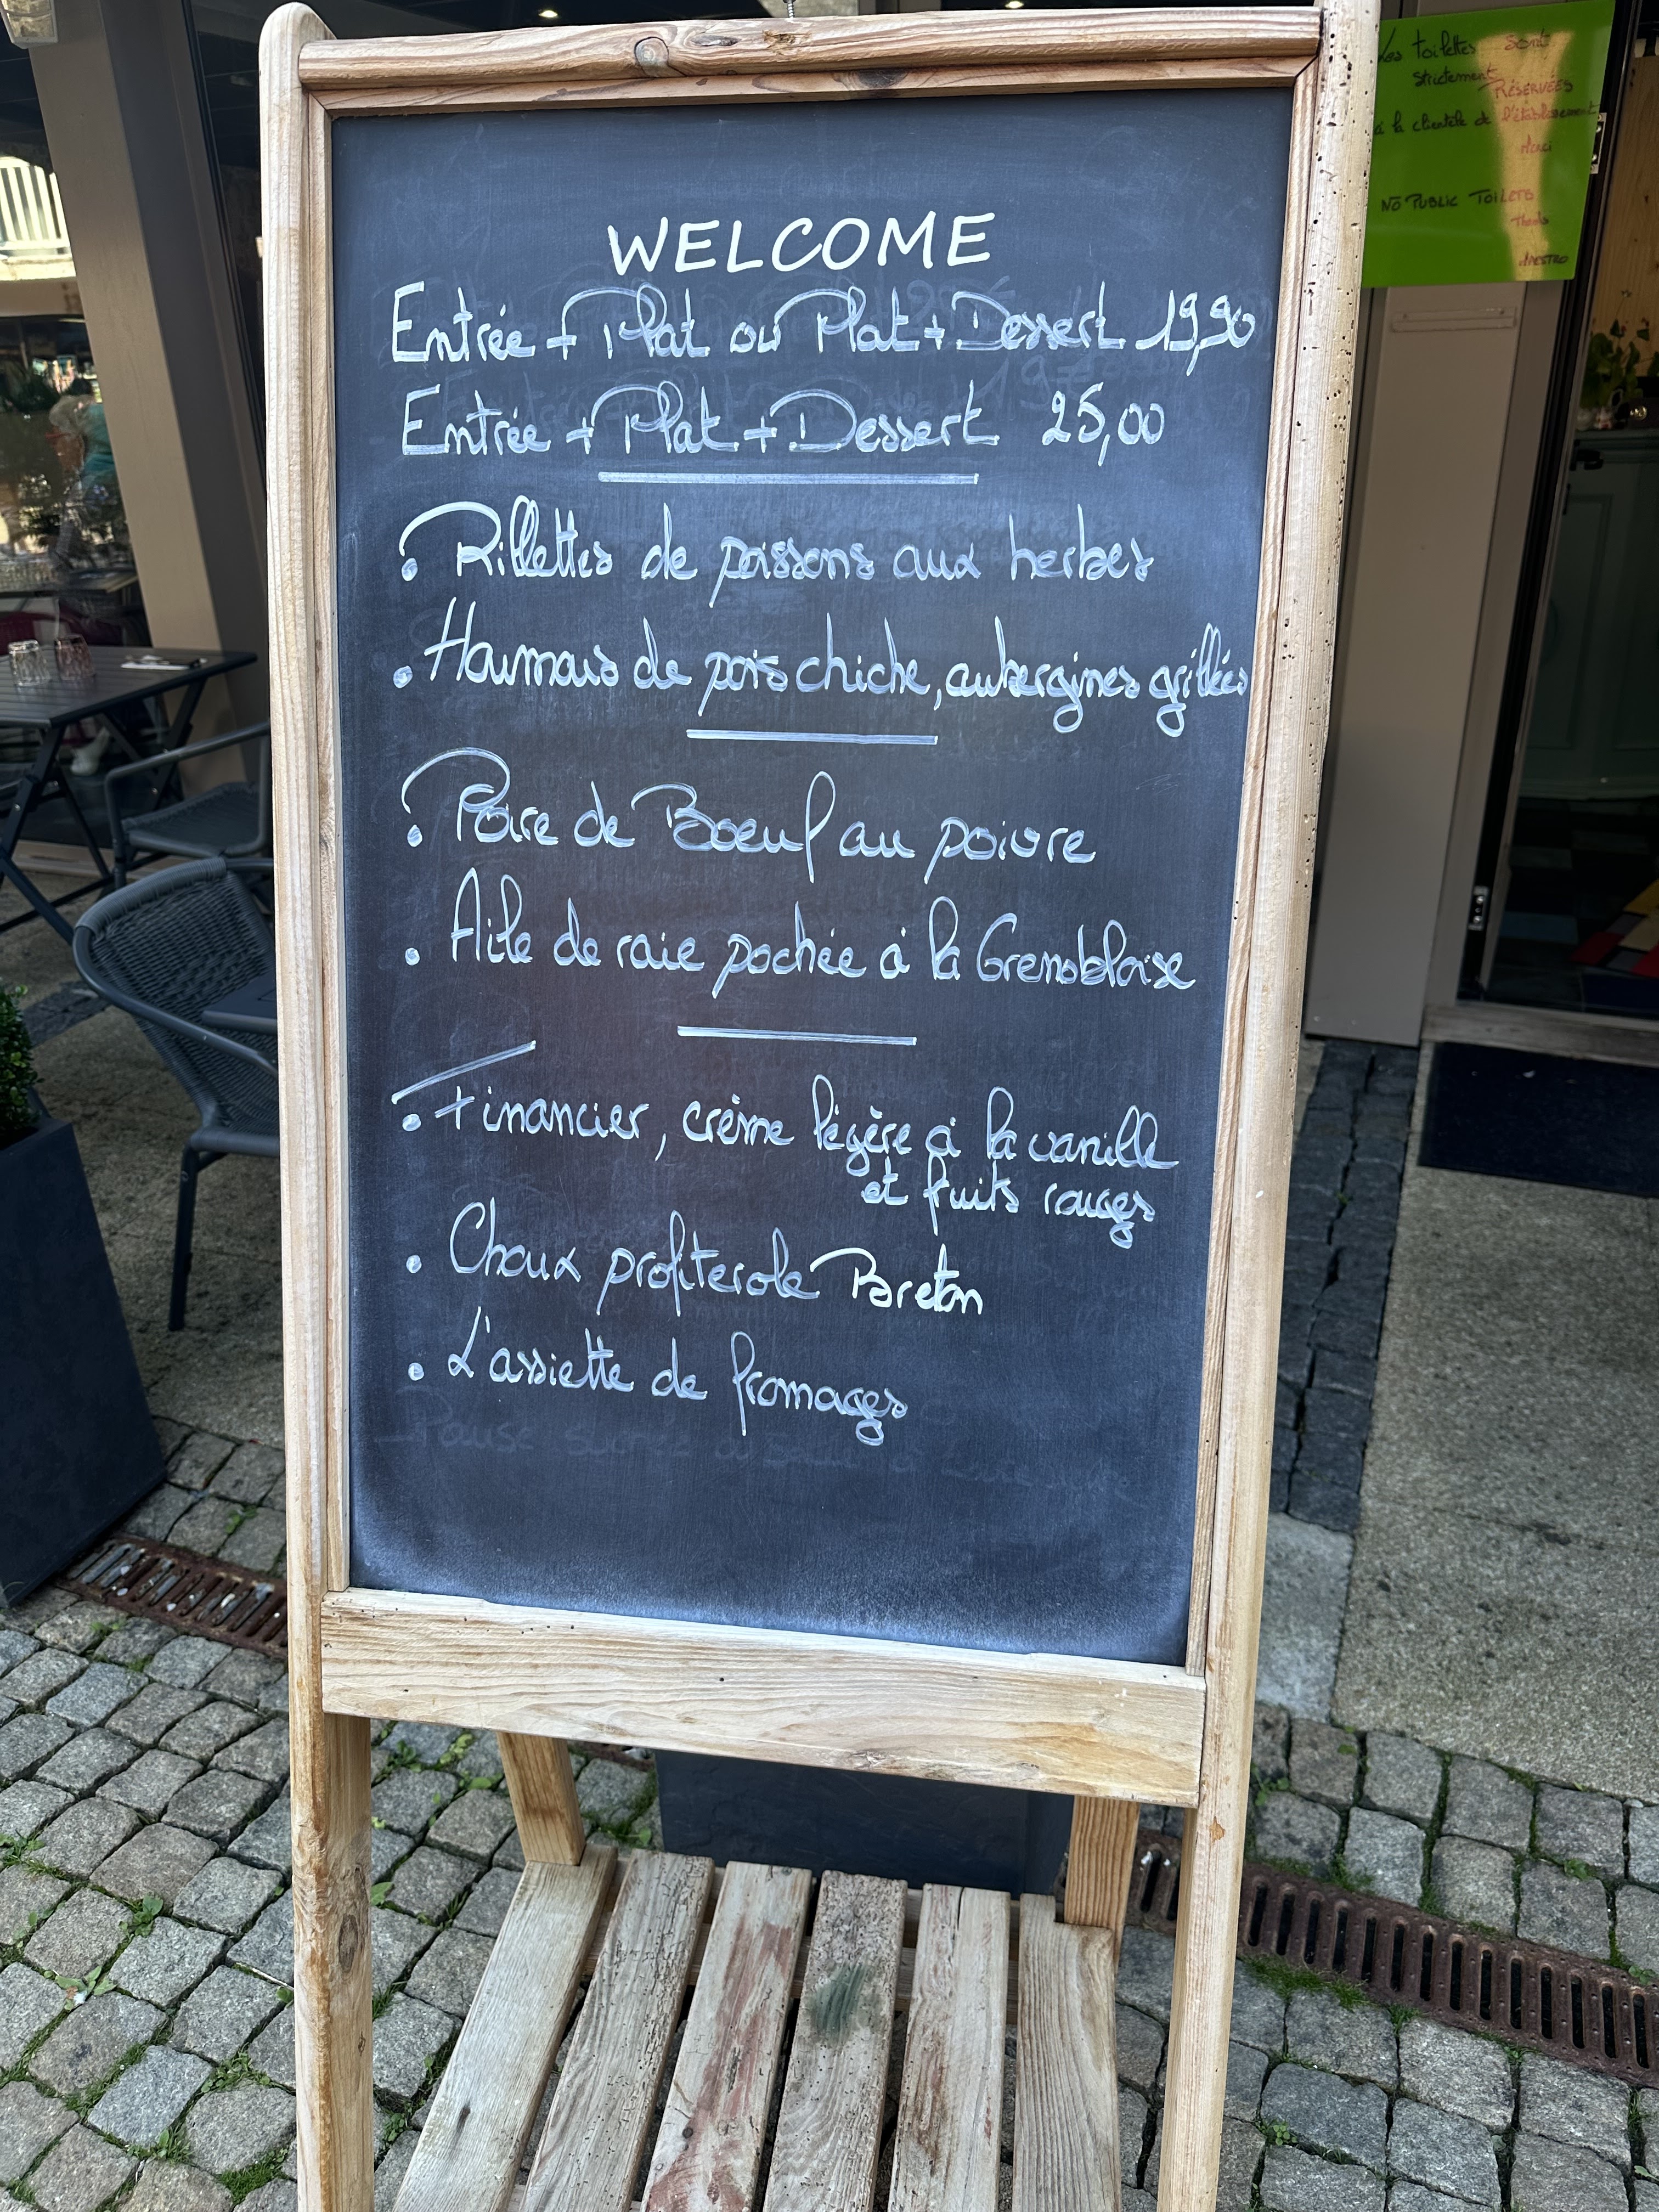 WELCOME
Entrée + Plat ou Plat + Dessert 19,90
Entrée + Plat + Dessert 25,00
• Rillettes de poissons aux herbes
• Houmous de pois chiche, aubergines grillées
• Poire de Boeuf au poivre
• Aile de raie pochée à la Grenobloise
• Financier, crème légère à la vanille
et fruits rouges
• Choux profiterole Breton
• L'assiette de fromages
Les toilettes sont
strictement RÉSERVÉES
à la clientèle de l'établissement
Merci
NO PUBLIC TOILETS
Thanks